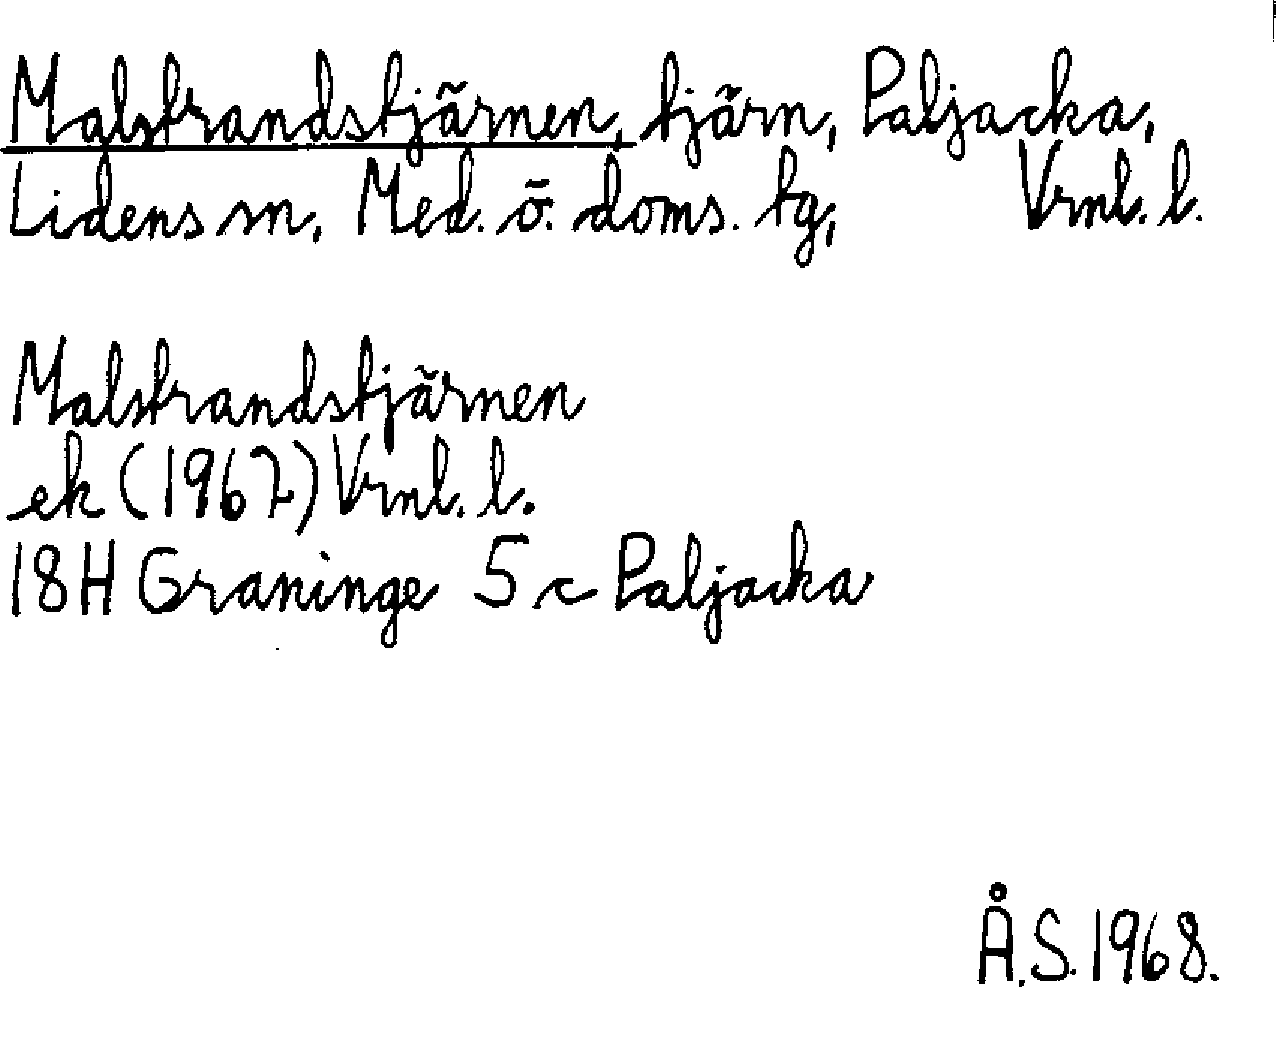 Malstrandstjärnen, tjärn, Paljacka,
Lidens sn, Med. ö. doms. tg, Vrnl. l.
Malstrandstjärnen
ek (1967) Vrnl. l.
18H Graninge 5c Paljacka
Å.S. 1968.